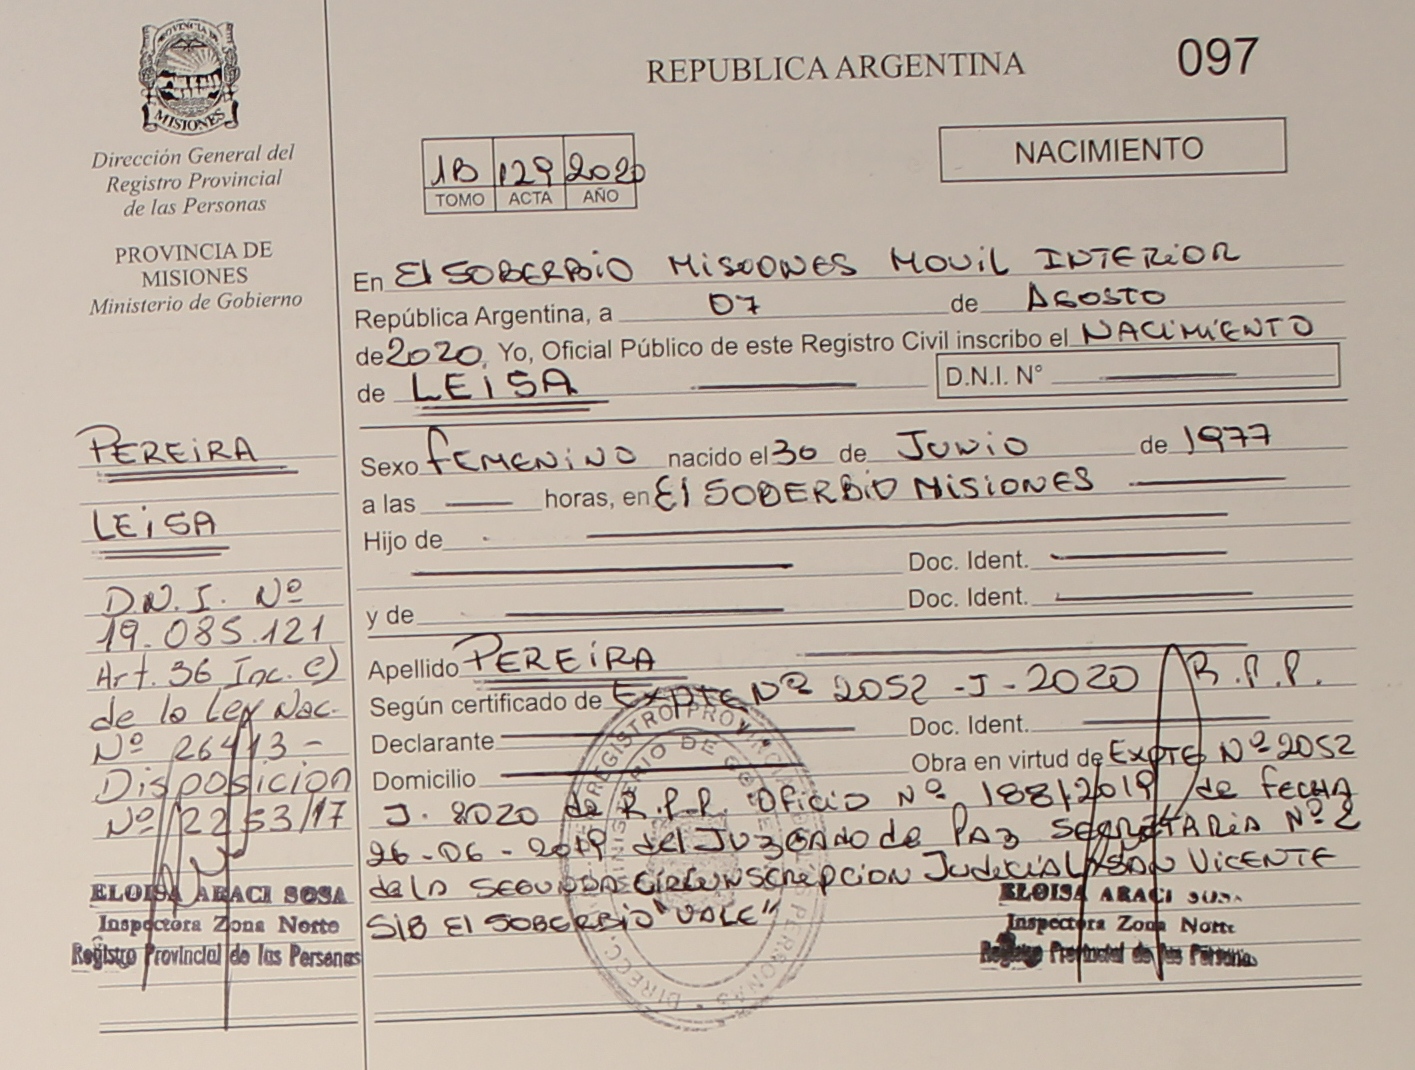 PROVINCIA DE
MISIONES
Dirección General del
Registro Provincial
de las Personas
PROVINCIA DE
MISIONES
Ministerio de Gobierno
PEREIRA
LEISA
D.N.I. Nº
19.085.121
Art. 36 Inc. c)
de la Ley Nac.
Nº 26413 -
Disposicion
Nº 2253/17
ELOISA ARACI SOSA
Inspectora Zona Norte
Registro Provincial de las Personas
REPUBLICA ARGENTINA
097
1B 129 2020
TOMO ACTA AÑO
NACIMIENTO
En El SOBERBIO MISIONES MOVIL INTERIOR
República Argentina, a 07 de AGOSTO
de 2020, Yo, Oficial Público de este Registro Civil inscribo el NACIMIENTO
de LEISA D.N.I. N°
Sexo FEMENINO nacido el 30 de JUNIO de 1977
a las horas, en El SOBERBIO MISIONES
Hijo de
Doc. Ident.
y de Doc. Ident.
Apellido PEREIRA
Según certificado de EXPTE Nº 2052 - J - 2020 R.P.P.
Declarante Doc. Ident.
Domicilio Obra en virtud de EXPTE Nº 2052
J. 2020 de R.P.P. Oficio Nº 188/2019 de FECHA
26-06-2019 del JUZGADO de PAZ SECRETARIA Nº 2
de la SEGUNDA CIRCUNSCRIPCION JUDICIAL SAN VICENTE
S/B El SOBERBIO "VALE"
ELOISA ARACI SOSA
Inspectora Zona Norte
Registro Provincial de las Personas